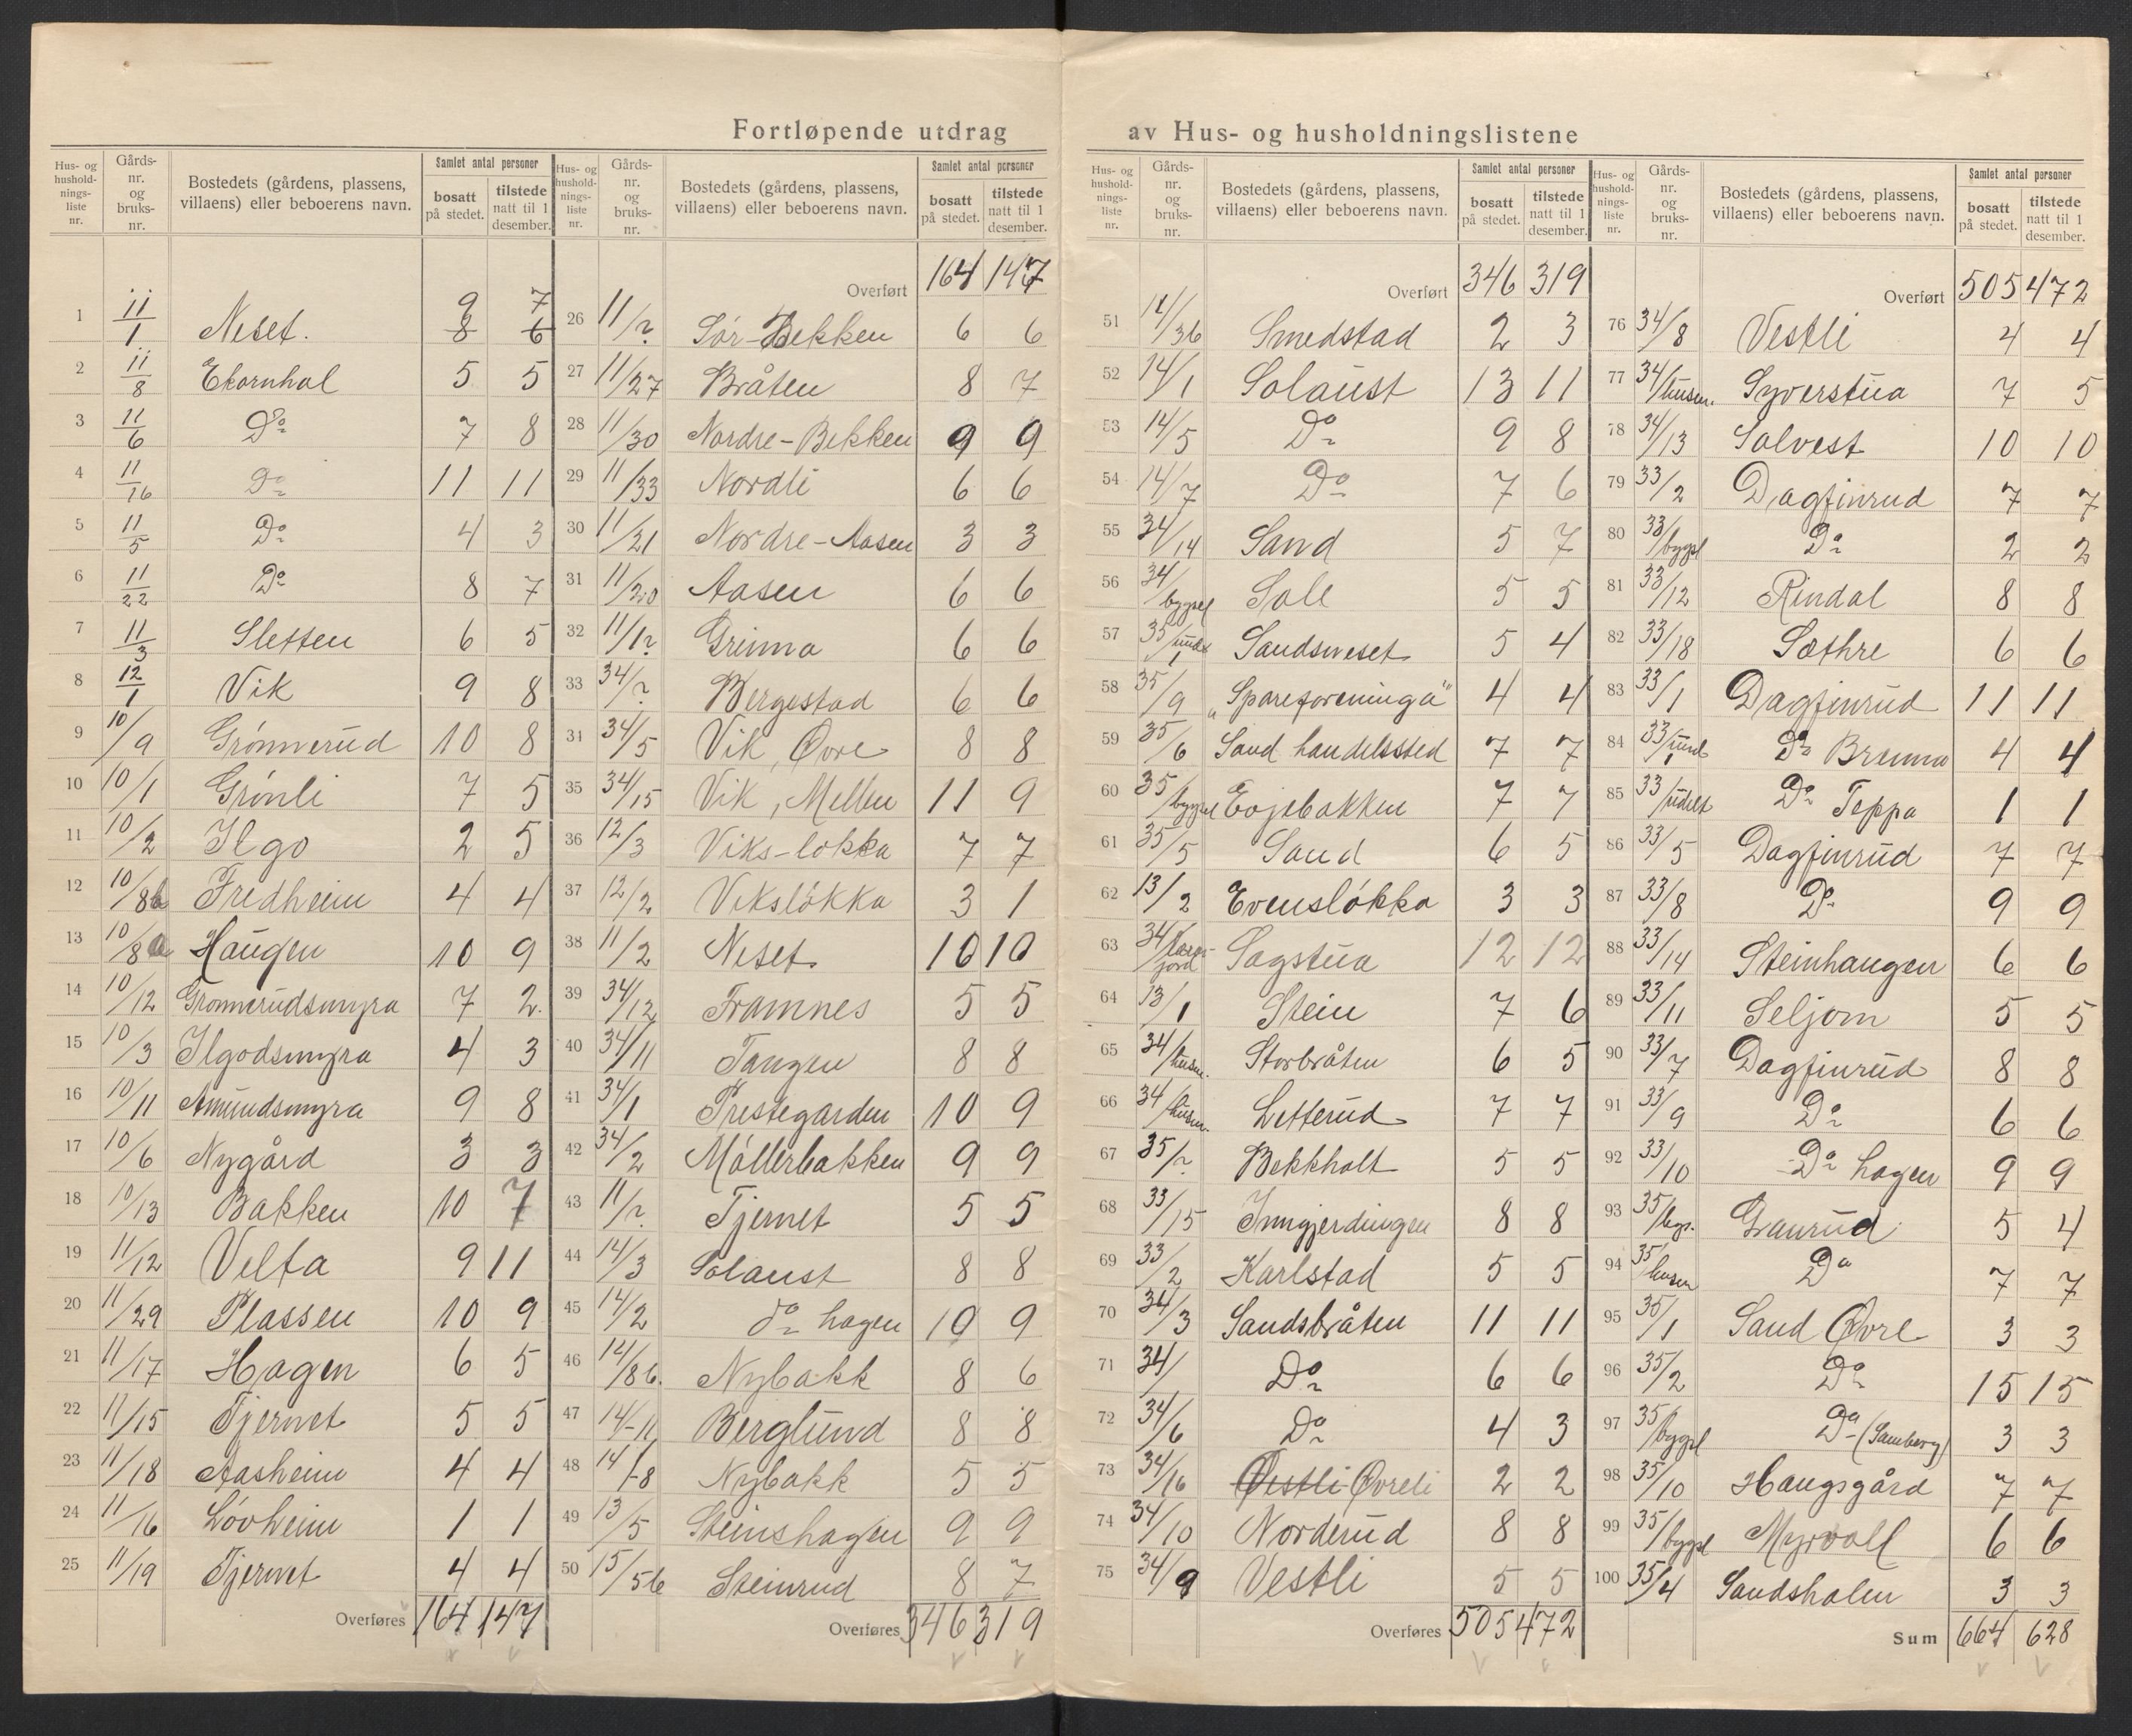 Fortløpende utdrag av Hus- og husholdningslistene
Hus- og husholdningsliste nr. | Gårds-nr. og bruks-nr. | Bostedets (gårdens, plassens, villaens) eller beboerens navn. | Samlet antal personer | bosatt på stedet. | tilstede natt til 1 desember.
1 11/1 Neset. 9 7 8 6
2 11/8 Ekornhol 5 5
3 11/6 Do 7 8
4 11/16 Do 11 11
5 11/5 Do 4 3
6 11/22 Do 8 7
7 11/3 Sletten 6 5
8 12/1 Vik 9 8
9 10/9 Grønnerud 10 8
10 10/1 Grönli 7 5
11 10/2 Ilgo 2 5
12 10/8b Fredheim 4 4
13 10/8a Haugen 10 9
14 10/12 Grønnerudsmyra 7 2
15 10/3 Ilgodsmyra 4 3
16 10/11 Amundsmyra 9 8
17 10/6 Nygård 3 3
18 10/13 Bakken 10 7
19 11/12 Velta 9 11
20 11/29 Plassen 10 9
21 11/17 Hagen 6 5
22 11/15 Tjernet 5 5
23 11/18 Aasheim 4 4
24 11/16 Lövheim 1 1
25 11/19 Tjernet 4 4
Overføres 164 147
Hus- og husholdningsliste nr. | Gårds-nr. og bruks-nr. | Bostedets (gårdens, plassens, villaens) eller beboerens navn. | Samlet antal personer | bosatt på stedet. | tilstede natt til 1 desember.
Overført 164 147
26 11/? Sør-Bekken 6 6
27 11/27 Bråten 8 7
28 11/30 Nordre-Bekken 9 9
29 11/33 Nordli 6 6
30 11/21 Nordre-Aasen 3 3
31 11/20 Aasen 6 6
32 11/1? Grinna 6 6
33 34/? Bergestad 6 6
31 34/5 Vik, Øvre 8 8
35 34/15 Vik, Mellen 11 9
36 12/3 Viks-lokka 7 7
37 12/2 Vikslökka 3 1
38 11/2 Neset 10 10
39 34/12 Framnes 5 5
40 34/11 Tangen 8 8
41 34/1 Prestegarden 10 9
42 34/2 Möllerbakken 9 9
43 11/? Tjernet 5 5
44 14/3 Solaust 8 8
45 14/2 do hagen 10 9
46 14/8b. Nybakk 8 6
47 14-11 Berglund 8 8
48 14/-8 Nybakk 5 5
49 13/5 Steinshagen 9 9
50 15/56 Steinrud 8 7
Overføres 346 319
Hus- og husholdningsliste nr. | Gårds-nr. og bruks-nr. | Bostedets (gårdens, plassens, villaens) eller beboerens navn. | Samlet antal personer | bosatt på stedet. | tilstede natt til 1 desember.
Overført 346 319
51 14/36 Smedstad 2 3
52 14/1 Solaust 13 11
53 14/5 Do 9 8
54 14/7 Do 7 6
55 34/14 Sand 5 7
56 34/bygsel Sole 5 5
57 35/1 Sandsneset 5 4
58 35/9 „Spareforeninga" 4 4
59 35/6 Sand handelssted 7 7
60 35/bygsel Evjebakken 7 7
61 35/5 Sand 6 5
62 13/2 Evenslökka 3 3
63 34/ jord Sagstua 12 12
64 13/1 Stein 7 6
65 34/husm. Storbråten 6 5
66 34/husm. Letterud 7 7
67 35/? Bekkholt 5 5
68 33/15 Inngjerdingen 8 8
69 33/2 Karlstad 5 5
70 34/3 Sandsbråten 11 11
71 34/ Do 6 6
72 34/6 Do 4 3
73 34/16 Østli Øvreli 2 2
74 34/10 Norderud 8 8
75 34/9 Vestli 5 5
Overføres 505 472
Hus- og husholdningsliste nr. | Gårds-nr. og bruks-nr. | Bostedets (gårdens, plassens, villaens) eller beboerens navn. | Samlet antal personer | bosatt på stedet. | tilstede natt til 1 desember.
Overført 505 472
76 34/8 Vestli 4 4
77 34/husm. Syverstua 7 5
78 34/13 Solvest 10 10
79 33/2 Dagfinrud 7 7
80 33/bygsl Do 2 2
81 33/12 Rindal 8 8
82 33/18 Sæthre 6 6
83 33/1 Dagfinrud 11 11
84 33/ Do Brenna 4 4
85 33/udelt Do Teppa 1 1
86 33/5 Dagfinrud 7 7
87 33/8 Do 9 9
88 33/14 Steinhaugen 6 6
89 33/11 Seljom 5 5
90 33/7 Dagfinrud 8 8
91 33/9 Do 6 6
92 33/10 Do hagen 9 9
93 35/bygs. Granrud 5 4
94 35/husm Do 7 7
95 35/1 Sand Øvre 3 3
96 35/2 Do 15 15
97 35/bygsl Do (Sandberg) 3 3
98 35/10 Haugsgård 7 7
99 35/bygsl Myrvoll 6 6
100 35/4 Sandsholm 3 3
Sum 664 628